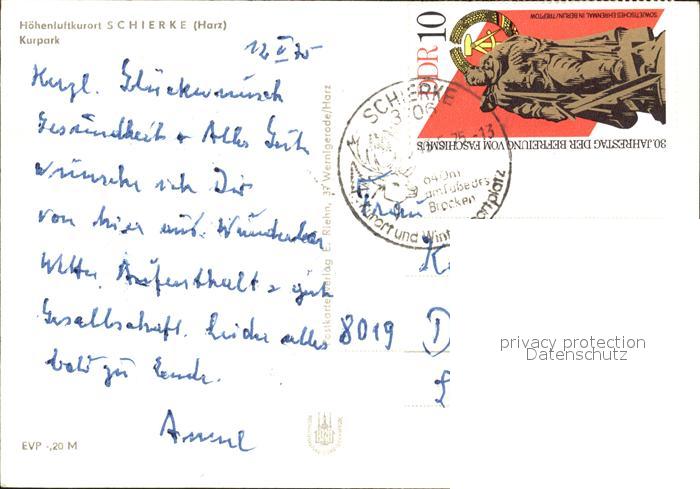 Höhenluftkurort SCHIERKE (Harz)
Kurpark
12 V 75
Herzl. Glückwunsch
Gesundheit + Alles Gute
wünsche ich Dir
von hier aus. Wunderbares
Wetter, Aufenthalt + gute
Gesellschaft. Leider alles
bald zu Ende.
EVP -,20 M
Postkartenverlag E. Riehn, 37 Wernigerode/Harz
DDR 10
SOWJETISCHES EHRENMAL IN BERLIN/TREPTOW
30. JAHRESTAG DER BEFREIUNG VOM FASCHISMUS
SCHIERKE
3706
75.-13
640m
am Fuße des
Brocken
Kurort und Wintersportplatz
Frau
8019 D
privacy protection
Datenschutz